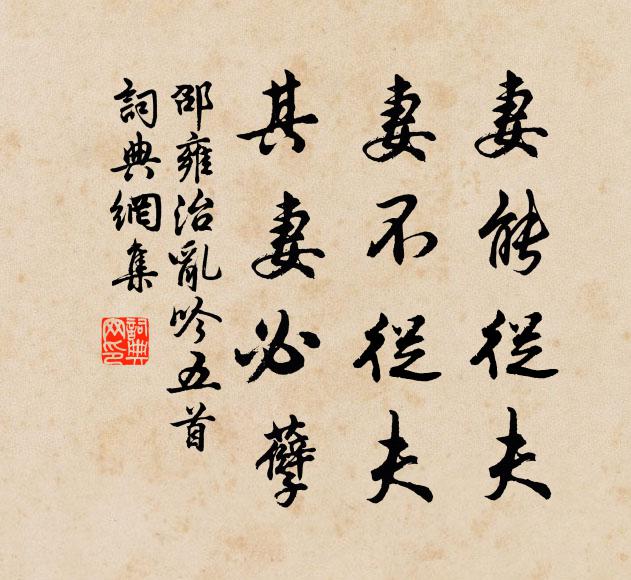 妻能從夫
妻不從夫
其妻必孽
邵雍治亂吟五首
詞典網集
詞典
网印